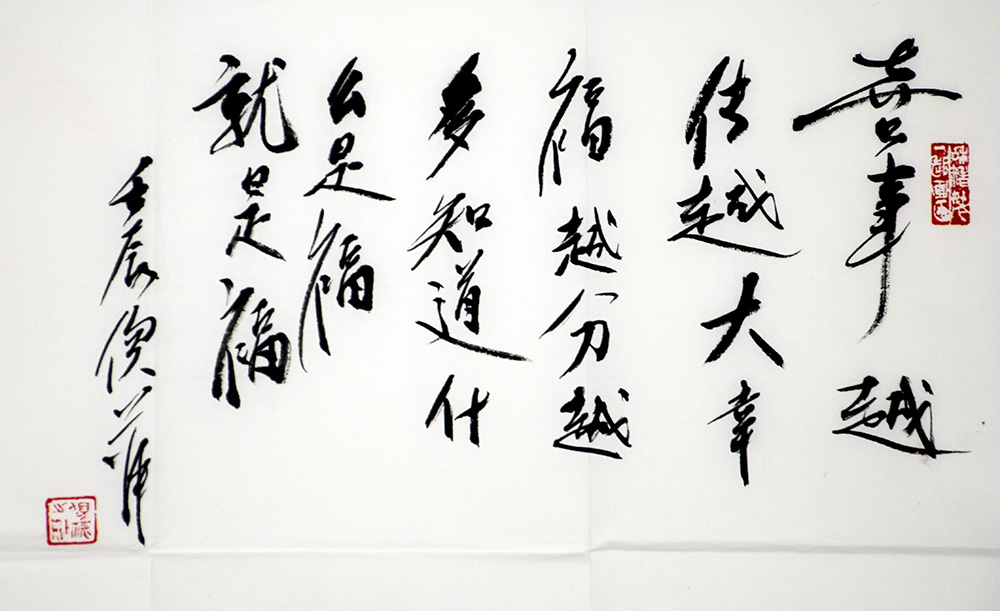 喜事越
传越大幸
福越分越
多知道什
么是福
就是福
壬辰俊萍